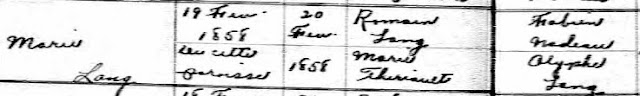 Marie
Lang
19 Fev.
1858
en cette
paroisse
20
Fev.
1858
Romain
Lang
Marie
Theriault
Fabien
Nadeau
Olyphe
Lang